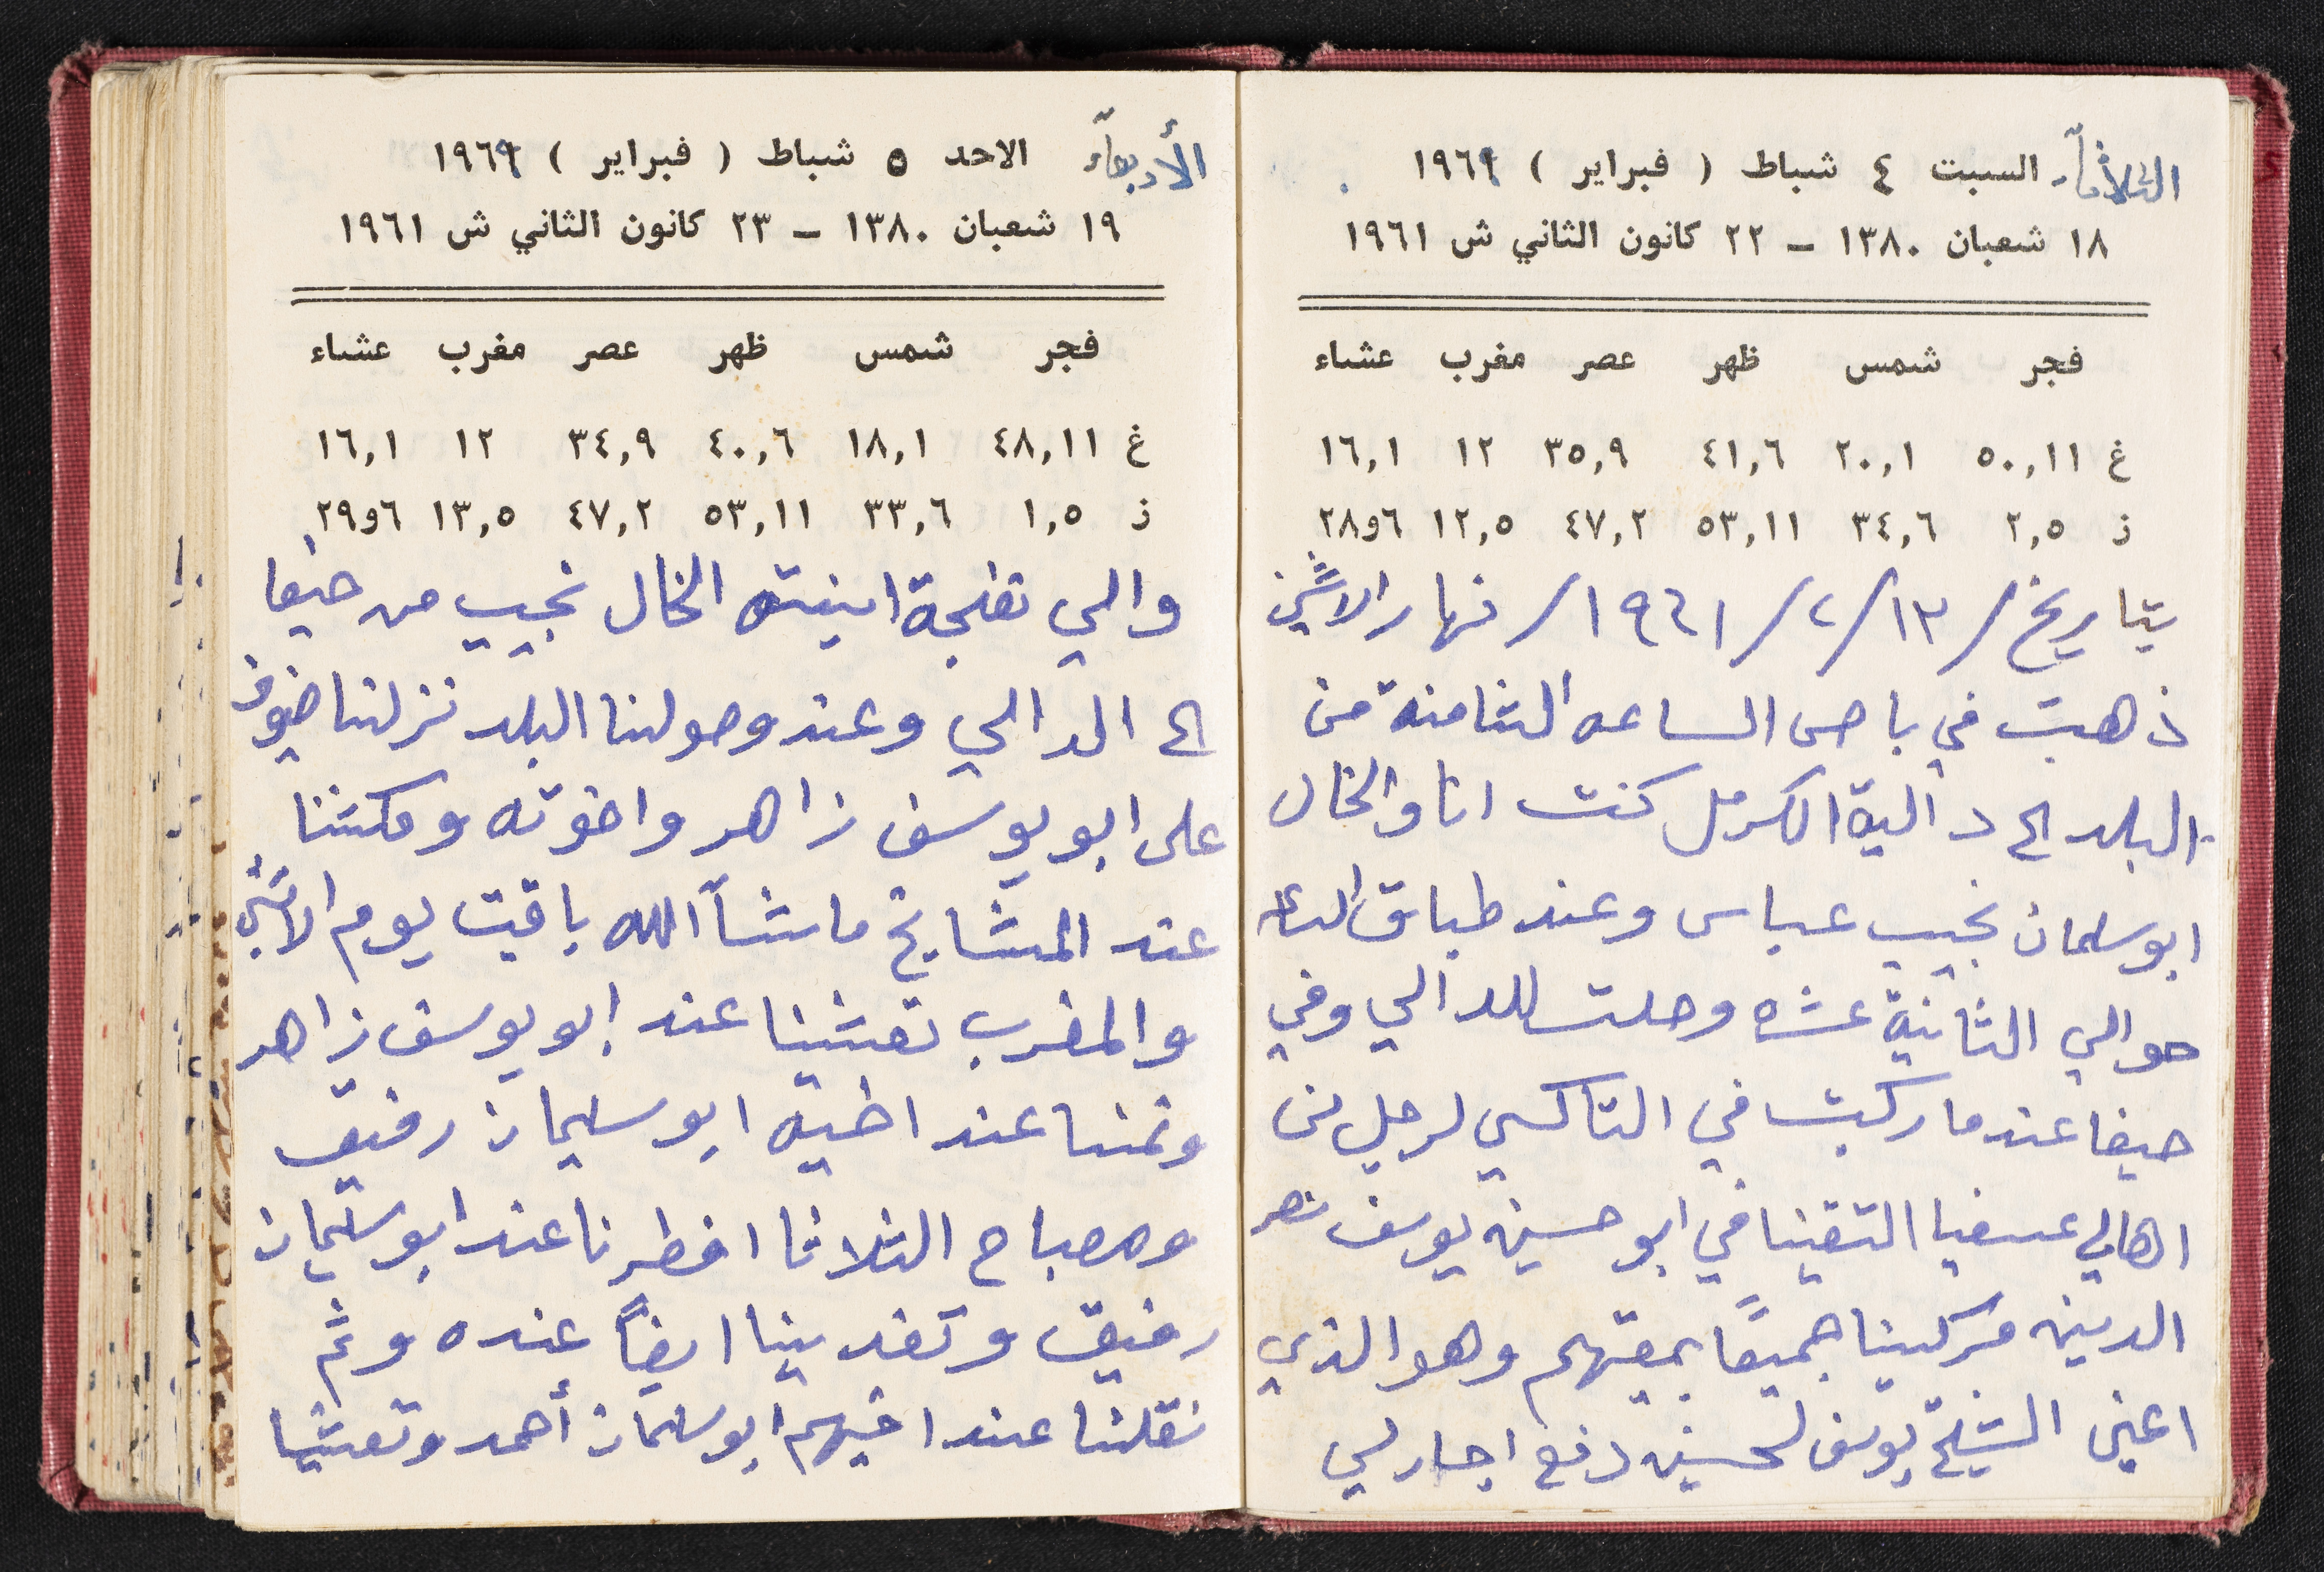 الثلاثاء السبت ٤ شباط ( فبراير ) ١٩٦٩
١٨ شعبان ١٣٨٠ – ٢٢ كانون الثاني ش ١٩٦١
فجر شمس ظهر عصر مغرب عشاء
غ ٥٠,١١ ٢٠,١ ٤١,٦ ٣٥,٩ ١٢ ١٦,١
ز ٢,٥ ٣٤,٦ ٥٣,١١ ٤٧,٢ ١٢,٥ ٦و٢٨
بتاريخ /١٣/٢/١٩٦١/ نهار الاثنين
ذهبت في باص الساعه الثامنة من
البلد الى دالية الكرمل كنت انا والخال
ابو سلمان نجيب عباس وعند طباق الساعه
حوالي الثانية عشره وصلت للدالي وفي
حيفا عندما ركبت في التاكسي لرجل من
اهالي عسفيا التقينا في ابو حسين يوسف نصر
الدين فركبنا جميعًا بمعيتهم وهو الذي
اعني الشيخ يوسف لحسين دفع اجار لي
الأربعاء الاحد ٥ شباط ( فبراير ) ١٩٦٩
١٩ شعبان ١٣٨٠ – ٢٣ كانون الثاني ش ١٩٦١
فجر شمس ظهر عصر مغرب عشاء
غ ٤٨,١١ ١٨,١ ٤٠,٦ ٣٤,٩ ١٢ ١٦,١
ز ١,٥ ٣٣,٦ ٥٣,١١ ٤٧,٢ ١٣,٥ ٦و٢٩
والي ابنته الخال نجيب من حيفا
الى الدالي وعند وصولنا البلد نزلنا ضيوف
على ابو يوسف زاهر واخوته ومكثنا
عند المشايخ ماشآ الله باقيت يوم الاثنين
والمغرب تعشينا عند ابو يوسف زاهر
ونمنا عند اخيه ابو سليمان رفيق
وصباح الثلاثا افطرنا عند ابو سليمان
رفيق وتغدينا ايضًا عنده وثم
نقلنا عند اخيهم ابو سلمان أحمد وتعشينا